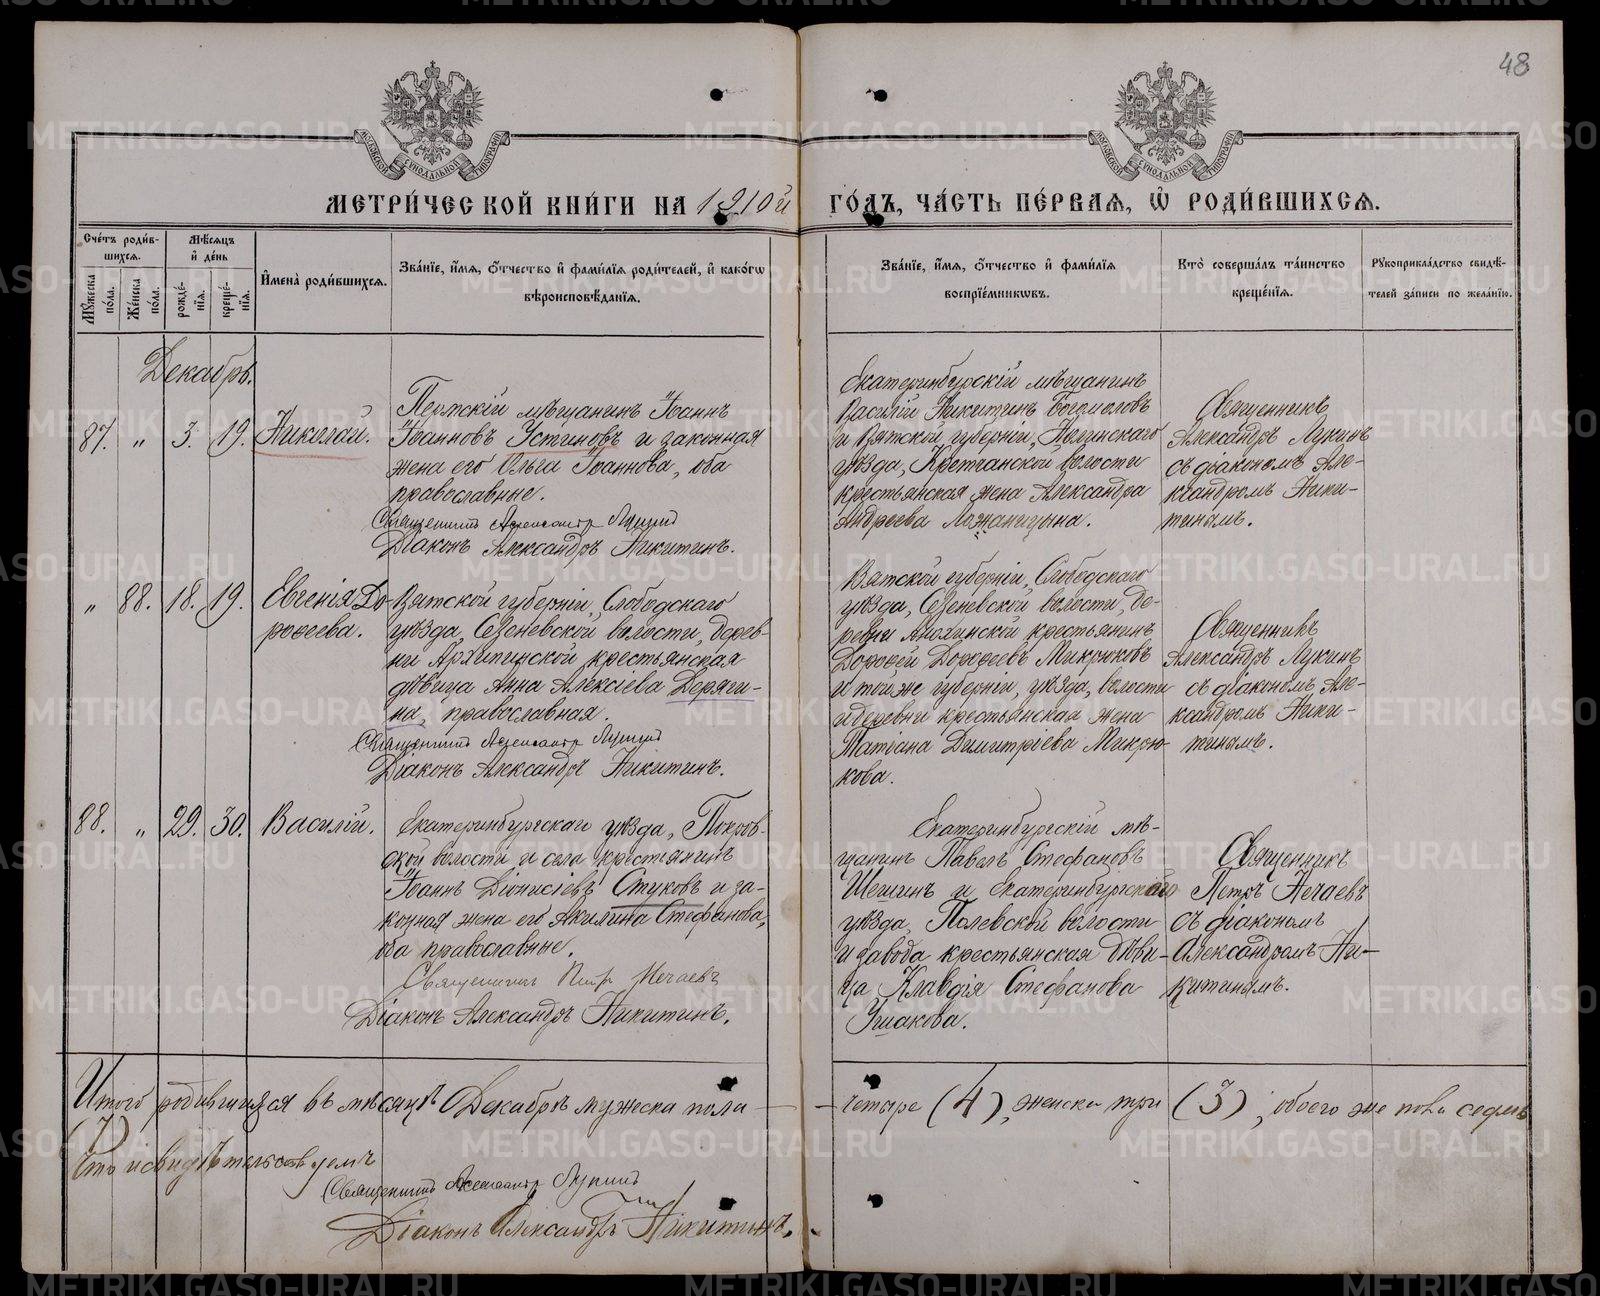 48
МОСКОВСКОЙ СУНОДАЛЬНОЙ ТИПОГРАФІИ
МОСКОВСКОЙ СУНОДАЛЬНОЙ ТИПОГРАФІИ
МЕТРИ́ЧЕСКОЙ КНИ́ГИ НА 1910й ГО́ДЪ, ЧА́СТЬ ПЕ́РВАѦ, Ѡ҆ РОДИ́ВШИХСѦ.
Сче́тъ роди́в-
шихсѧ.
Мꙋ́жеска по́ла.
Же́нска по́ла.
Мѣ́сѧцъ и҆ де́нь
рожде́нїѧ.
креще́нїѧ.
И҆мена̀ роди́вшихсѧ.
Зва́нїе, и҆́мѧ, ѻ҆́тчество и҆ фами́лїѧ роди́телей, и҆ како́гѡ
вѣроисповѣ́данїѧ.
Зва́нїе, и҆́мѧ, ѻ҆́тчество и҆ фами́лїѧ
воспрїе́мникѡвъ.
Кто̀ соверша́лъ та́инство
креще́нїѧ.
Рꙋкоприкла́дство свидѣ́-
телей за́писи по жела́нїю.
Декабрь.
87. „ 3. 19. Николай.
Пермскій мѣщанинъ Іоаннъ
Іоанновъ Устиновъ и законная
жена его Ольга Іоаннова, оба
православные.
Священникъ Александръ Лукинъ
Діаконъ Александръ Никитинъ.
Екатеринбургскій мѣщанинъ
Василій Никитинъ Богомоловъ
и Вятской губерніи, Нолинскаго
уѣзда, Кретчанской волости
крестьянская жена Александра
Андреева
Священникъ
Александръ Лукинъ
съ діакономъ Але-
ксандромъ Ники-
тинымъ.
„ 88. 18. 19. Евгенія До-
роѳеева.
Вятской губерніи, Слободскаго
уѣзда, Сезеневской волости, дерев-
ни Архипинской крестьянская
дѣвица Анна Алексіева Деряги-
на, православная.
Священникъ Александръ Лукинъ
Діаконъ Александръ Никитинъ.
Вятской губерніи, Слободскаго
уѣзда, Сезеневской волости, де-
ревни Анохинской крестьянинъ
Дороѳей Дороѳеевъ Микрюковъ
и той же губерніи, уѣзда, волости
и деревни крестьянская жена
Татіана Димитріева Микрю-
кова.
Священникъ
Александръ Лукинъ
съ діакономъ Але-
ксандромъ Ники-
тинымъ.
88. „ 29. 30. Василій.
Екатеринбургскаго уѣзда, Покров-
ской волости и села крестьянинъ
Іоаннъ Діонисіевъ Стуковъ и за-
конная жена его Акилина Стефанова,
оба православные.
Священникъ Петръ Нечаевъ
Діаконъ Александръ Никитинъ.
Екатеринбургскій мѣ-
щанинъ Павелъ Стефановъ
Шешинъ и Екатеринбургскаго
уѣзда, Полевской волости
и завода крестьянская дѣви-
ца Клавдія Стефанова
Ушакова.
Священникъ
Петръ Нечаевъ
съ діакономъ
Александромъ Ни-
китинымъ.
Итого родившихся въ мѣсяцѣ Декабрѣ мужеска пола — четыре (4), женска три (3), обоего же пола седмь
(7)
Что и свидѣтельствуемъ
Священникъ Александръ Лукинъ
Діаконъ Александръ Никитинъ.
METRIKI.GASO-URAL.RU